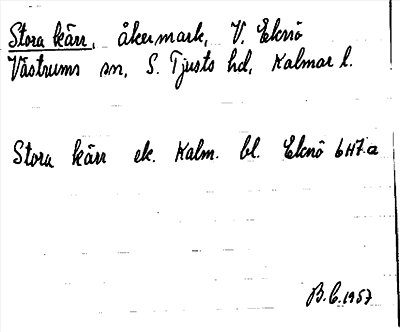 Stora kärr, åkermark, V. Eknö
Västrums sn, S. Tjusts hd, Kalmar l.
Stora kärr ek. Kalm. bl. Eknö 6H7a
B.C.1957